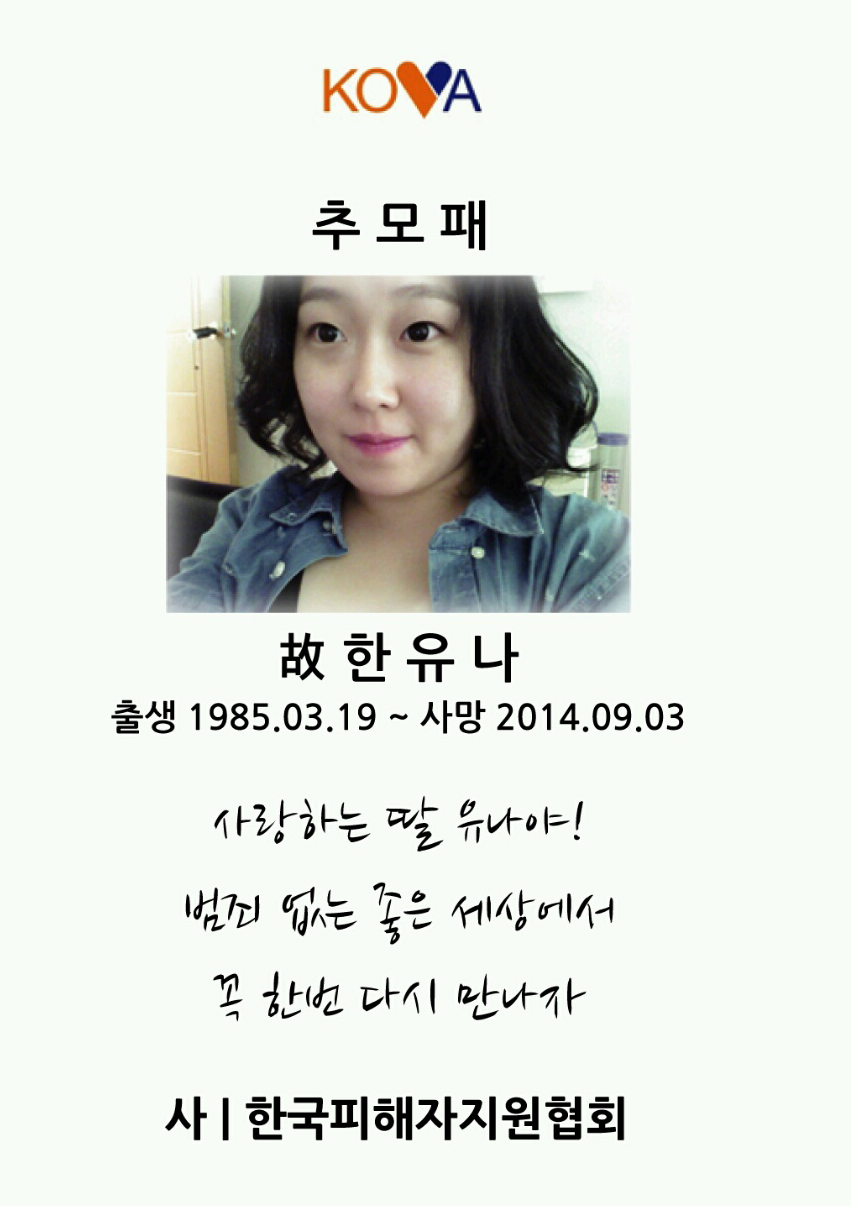 KOVA
추모패
故 한유나
출생 1985.03.19 ~ 사망 2014.09.03
사랑하는 딸 유나야!
범죄 없는 좋은 세상에서
꼭 한번 다시 만나자
사 | 한국피해자지원협회